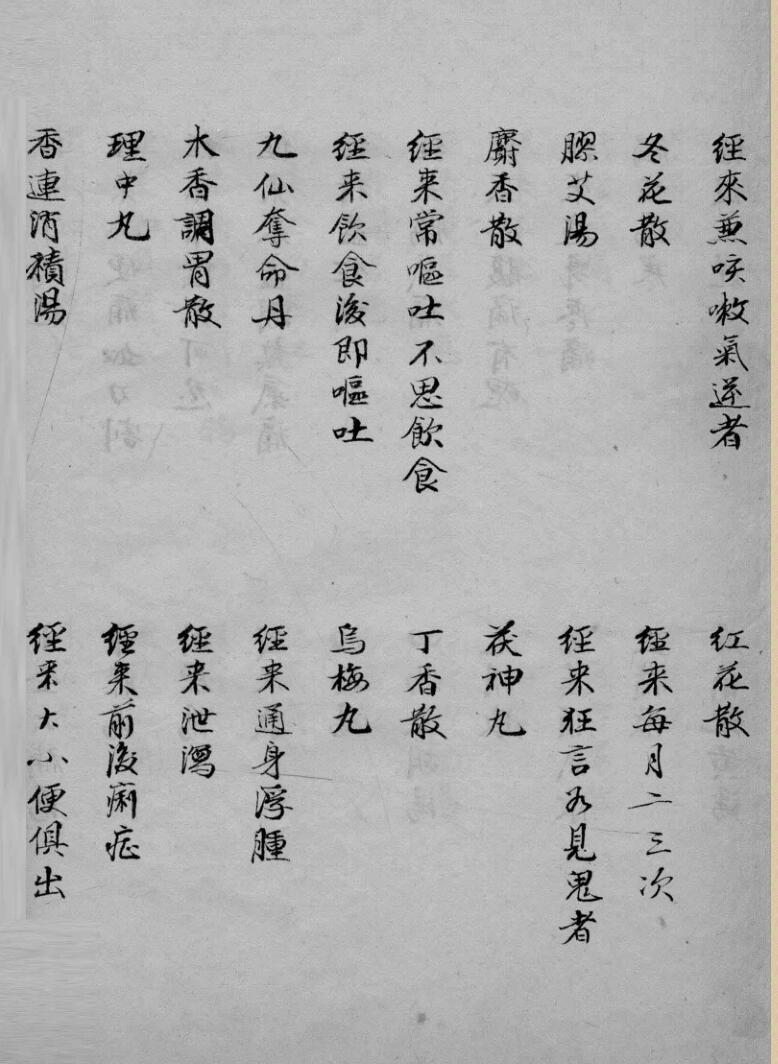 經來兼咳嗽氣逆者
紅花散
冬花散
經来每月二三次
膠艾湯
經来狂言若見鬼者
麝香散
茯神丸
經来常嘔吐不思飲食
丁香散
經来飲食後即嘔吐
烏梅丸
九仙奪命丹
經来通身浮腫
木香調胃散
經来泄瀉
理中丸
經来前後痢症
香連消積湯
經来大小便俱出